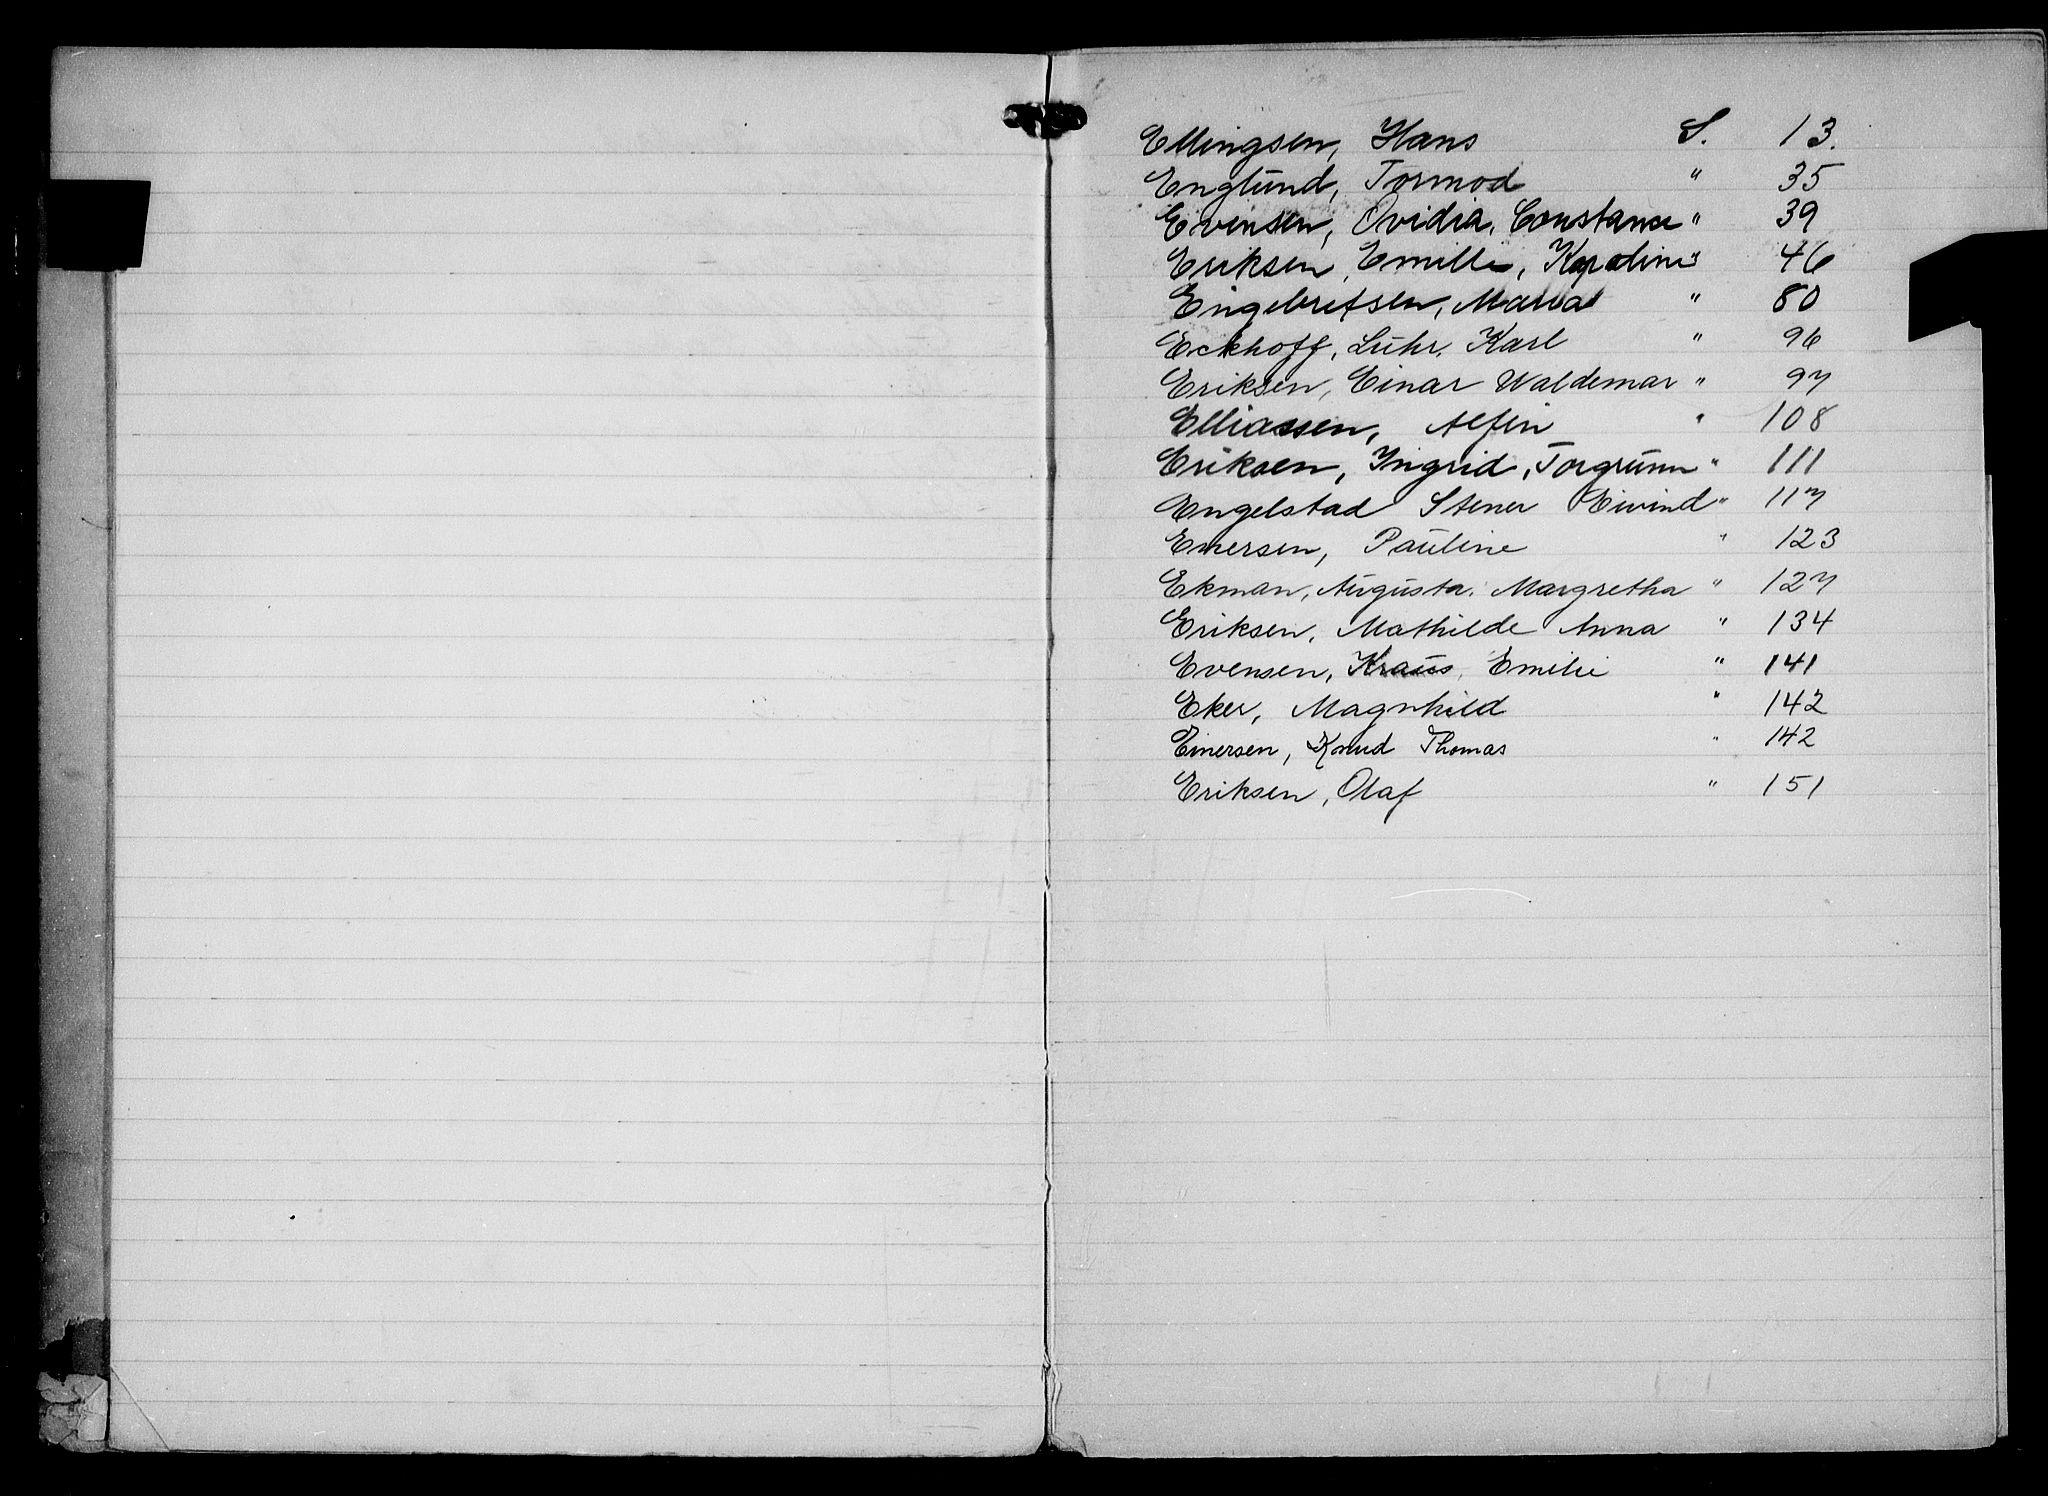 Ellingsen, Hans S. 13.
Englund, Tormod " 35
Evensen, Ovidia, Constance " 39
Eriksen, Emilie, Karoline " 46
Engebretsen, Maria " 80
Eckhoff, Lühr, Karl " 96
Eriksen, Einar Waldemar " 97
Elliassen, Alfin " 108
Eriksen, Ingrid, Torgrunn " 111
Engelstad Stener Eivind " 117
Enersen, Pauline " 123
Ekman, Augusta, Margretha " 127
Eriksen, Mathilde Anna " 134
Evensen, Kraus, Emilie " 141
Eker, Magnhild " 142
Einersen, Knud Thomas " 142
Eriksen, Olaf " 151